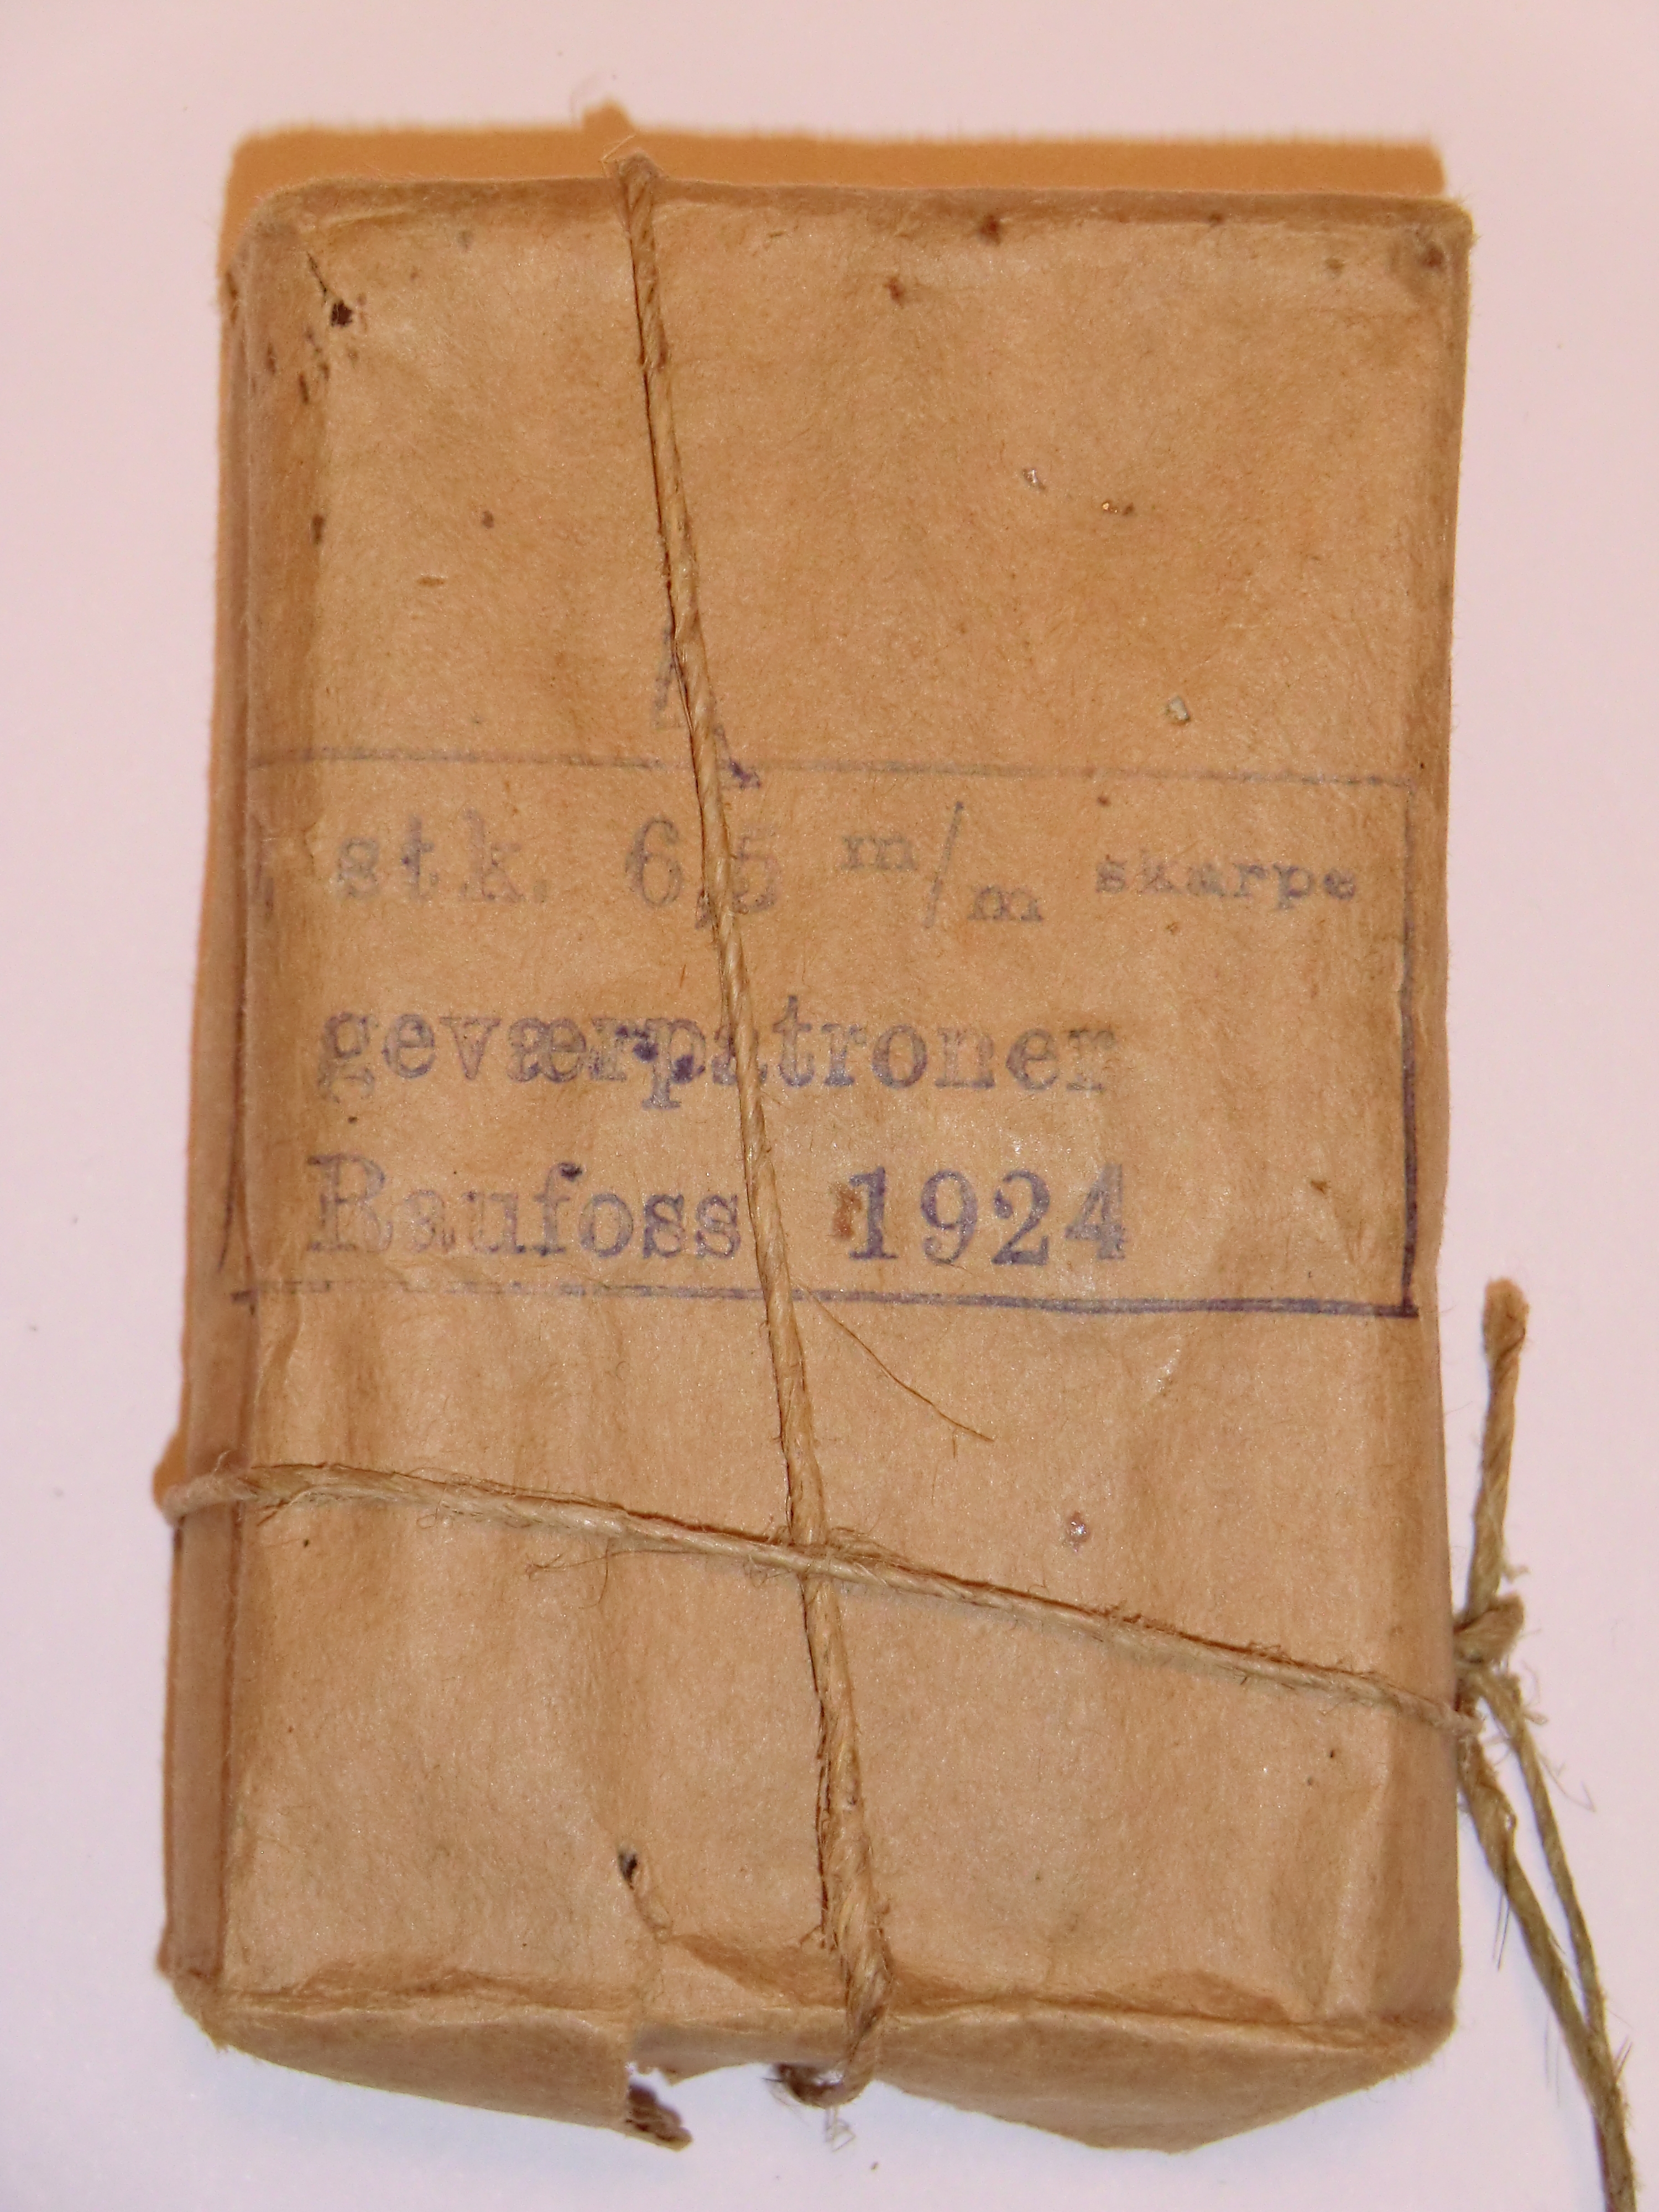 A
stk. 6,5 m/m skarpe
geværpatroner
Raufoss 1924